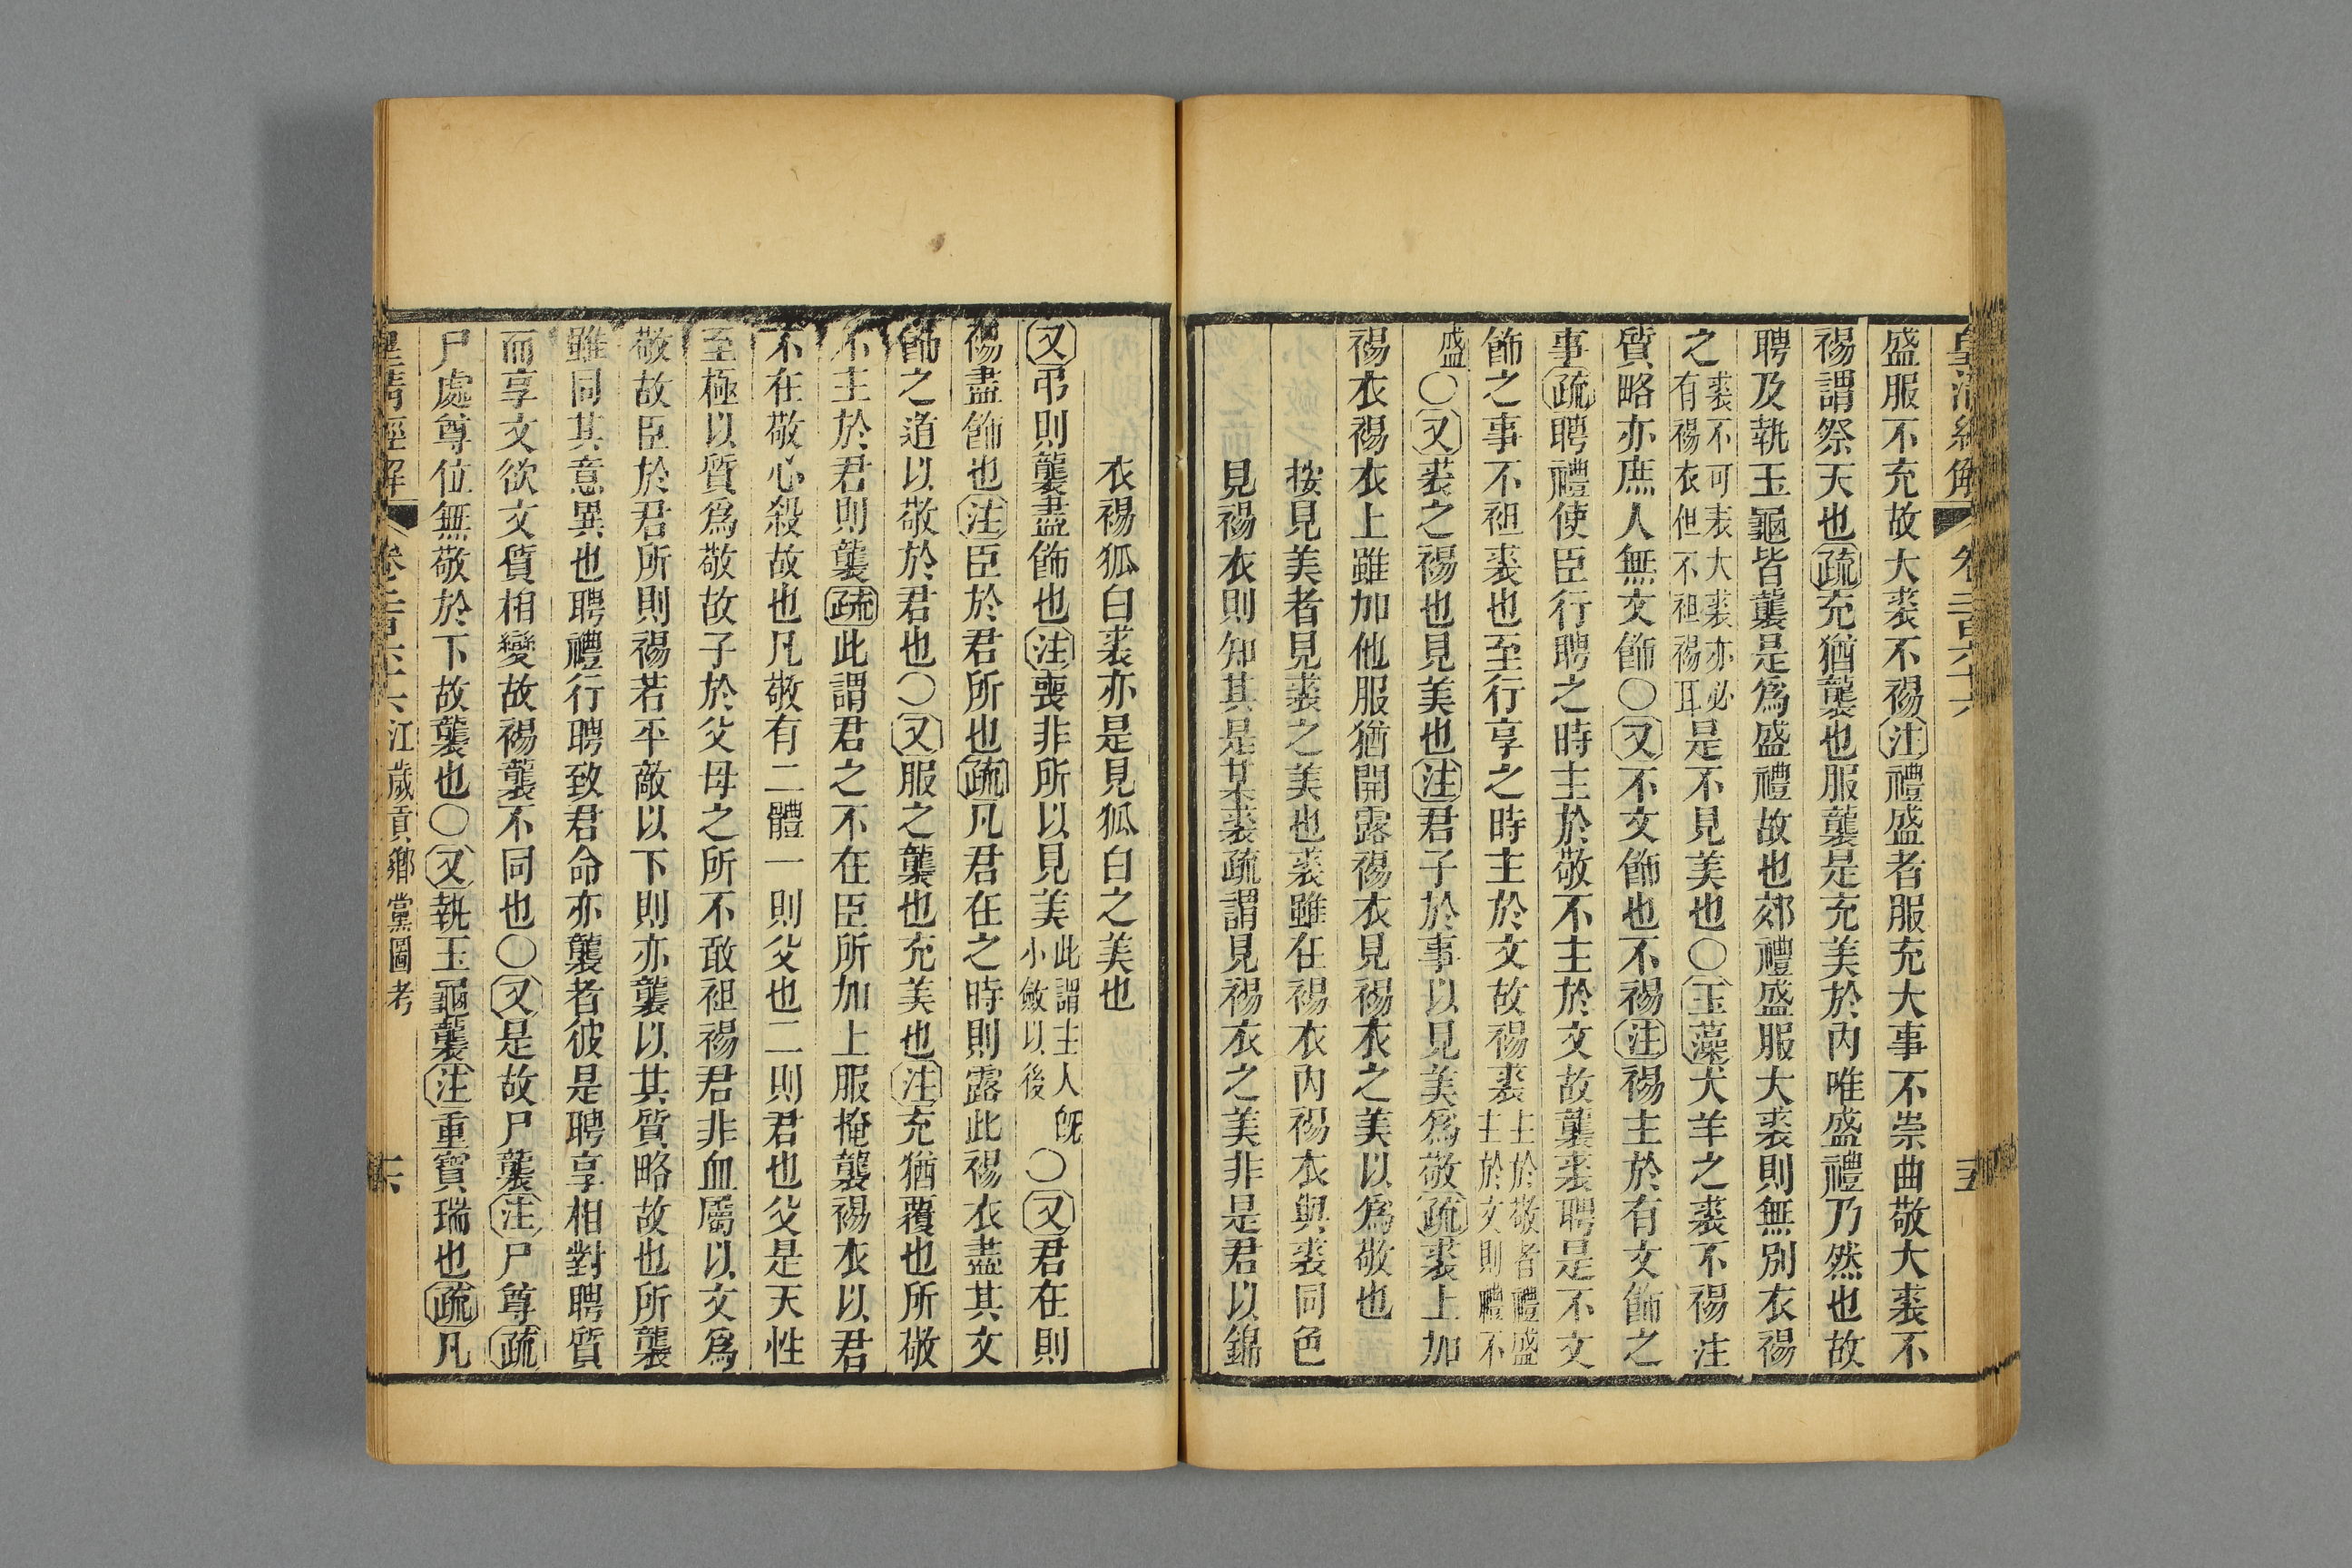 皇清經解 卷二百六十六 十五
盛服不充故大裘不裼注禮盛者服充大事不崇曲敬大裘不
裼謂祭天也疏充猶襲也服襲是充美於內唯盛禮乃然也故
聘及執玉龜皆襲是爲盛禮故也郊禮盛服大裘則無別衣裼
之裘不可表大裘亦必有裼衣但不袒裼耳是不見美也〇玉藻犬羊之裘不裼注
質略亦庶人無文飾〇又不文飾也不裼注裼主於有文飾之
事疏聘禮使臣行聘之時主於敬不主於文故襲裘聘是不文
飾之事不袒裘也至行享之時主於文故裼裘主於敬者禮盛主於文則禮不
盛〇又裘之裼也見美也注君子於事以見美爲敬疏裘上加
裼衣裼衣上雖加他服猶開露裼衣見裼衣之美以爲敬也
按見美者見裘之美也裘雖在裼衣內裼衣與裘同色
見裼衣則知其是某裘疏謂見裼衣之美非是君以錦
衣裼狐白裘亦是見狐白之美也
又弔則襲不盡飾也注喪非所以見美此謂主人既小斂以後〇又君在則
裼盡飾也注臣於君所也疏凡君在之時則露此裼衣盡其文
飾之道以敬於君也〇又服之襲也充美也注充猶覆也所敬
不主於君則襲疏此謂君之不在臣所加上服掩襲裼衣以君
不在敬心殺故也凡敬有二體一則父也二則君也父是天性
至極以質爲敬故子於父母之所不敢袒裼君非血屬以文爲
敬故臣於君所則裼若平敵以下則亦襲以其質略故也所襲
雖同其意異也聘禮行聘致君命亦襲者彼是聘享相對聘質
而享文欲文質相變故裼襲不同也〇又是故尸襲注尸尊疏
尸處尊位無敬於下故襲也〇又執玉龜襲注重寶瑞也疏凡
皇清經解 卷二百六十六 江歲貢鄉黨圖考 十六